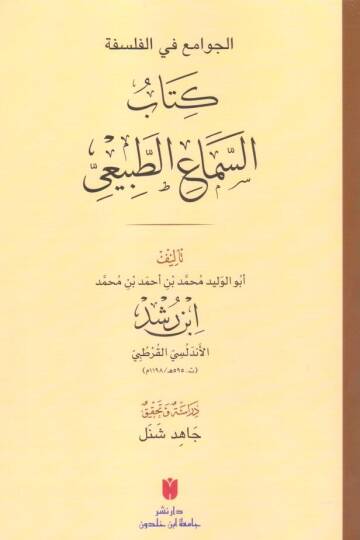 الجوامع في الفلسفة
كِتَابُ
السَّمَاعِ الطَّبِيعِيِّ
تَأليفُ
أبو الوَليد مُحمَّد بْنِ أحمَد بْنِ مُحمَّد
ابْنِ رُشْد
الأَنْدَلُسِيّ القُرْطُبِيّ
(ت. ٥٩٥هـ/١١٩٨م)
دِرَاسَةٌ وَتَحْقِيقٌ
جَاهِد شَنَل
دار نشر
جامعة ابن خلدون